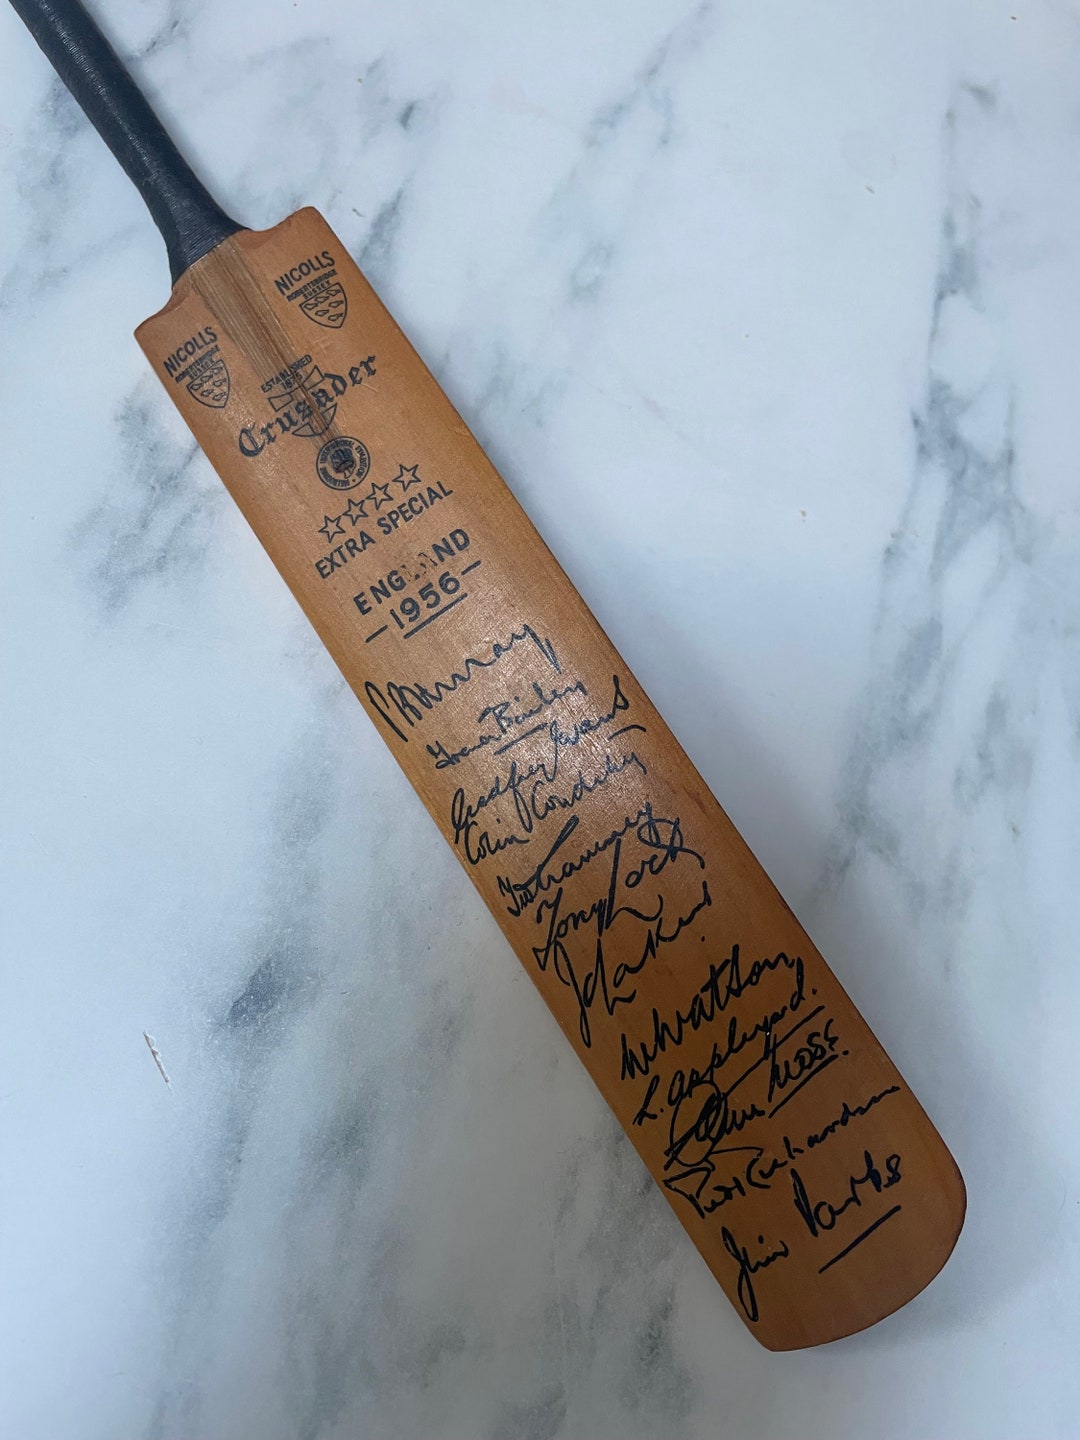 NICOLLS
ROBERTSBRIDGE
SUSSEX
NICOLLS
ROBERTSBRIDGE
SUSSEX
ESTABLISHED
1876
Crusader
EXTRA SPECIAL
ENGLAND
-1956-
Trevor Bailey
Godfrey Evans
Colin Cowdrey
Tony Lock
J C Laker
W Watson
R. Appleyard.
Alan Moss.
Peter Richardson
Jim Parks